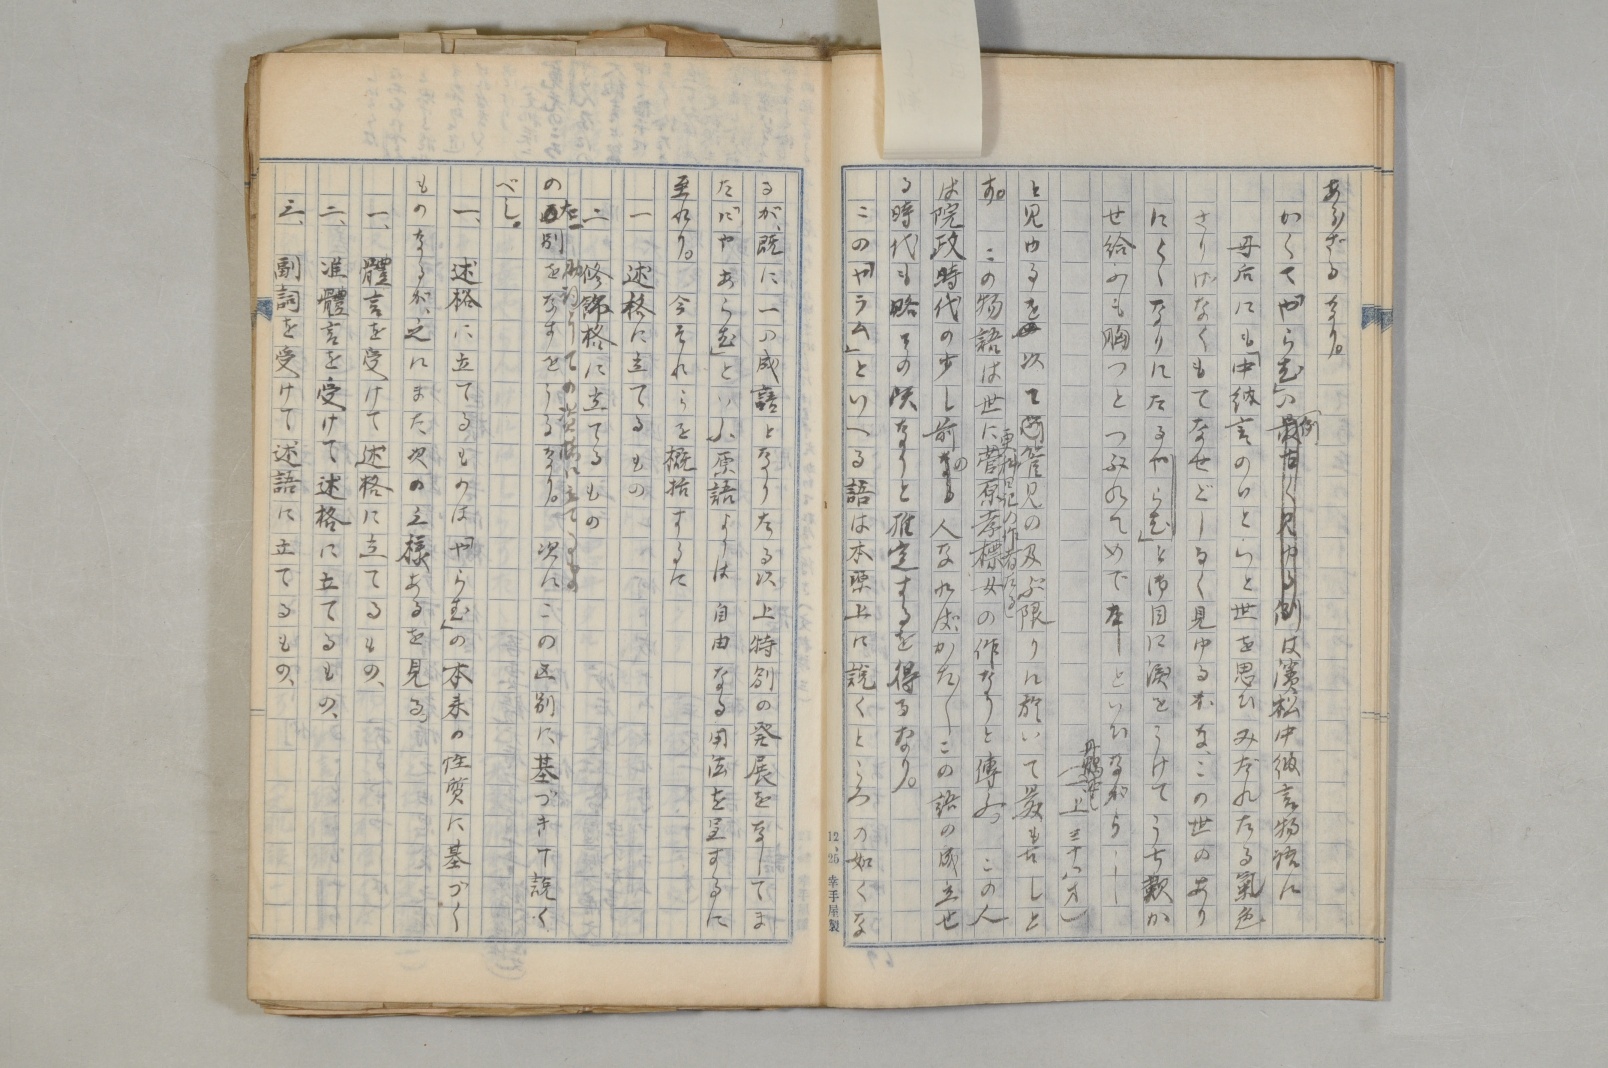 あらざるなり。
かくて「やらむ」の例最古く見ゆる例は濱松中納言物語に
母后にも「中納言のいといと世を思ひみだれたる氣色
さりげなくもてなせどしるく見ゆるかな、この世のあり
にくくなりにたるやらむ」と御目に涙をうけてうち歎か
せ給ふも胸つとつぶれてめでたしといひながら――
(丹鶴叢書 一上三十八オ)
と見ゆるを以て管見の及ぶ限りに於いて最も古しと
す。この物語は世に更科日記の作者たる菅原孝標女の作なりと傳ふ。この人
は院政時代の少し前の人なればかたがたこの語の成立せ
る時代も略その頃なりと推定するを得るなり。
この「ヤラム」といへる語は本要上に説くところの如くな
12、25 幸手屋製
るが、既に一の成語となりたる以上特創の発展をなしてま
たに「やあらむ」といふ原語よりは自由なる用法を呈するに
至れり。今それらを概括するに
一 述格に立てるもの
二 修飾格に立てるもの
の二別をなすをうるなり。次にこの区別に基づきて説く
べし。
一、述格に立てるものは「やらむ」の本来の性質に基づく
ものなるが、之にまた次の三様あるを見る。
一、體言を受けて述格に立てるもの、
二、准體言を受けて述格に立てるもの、
三、副詞を受けて述語に立てるもの、